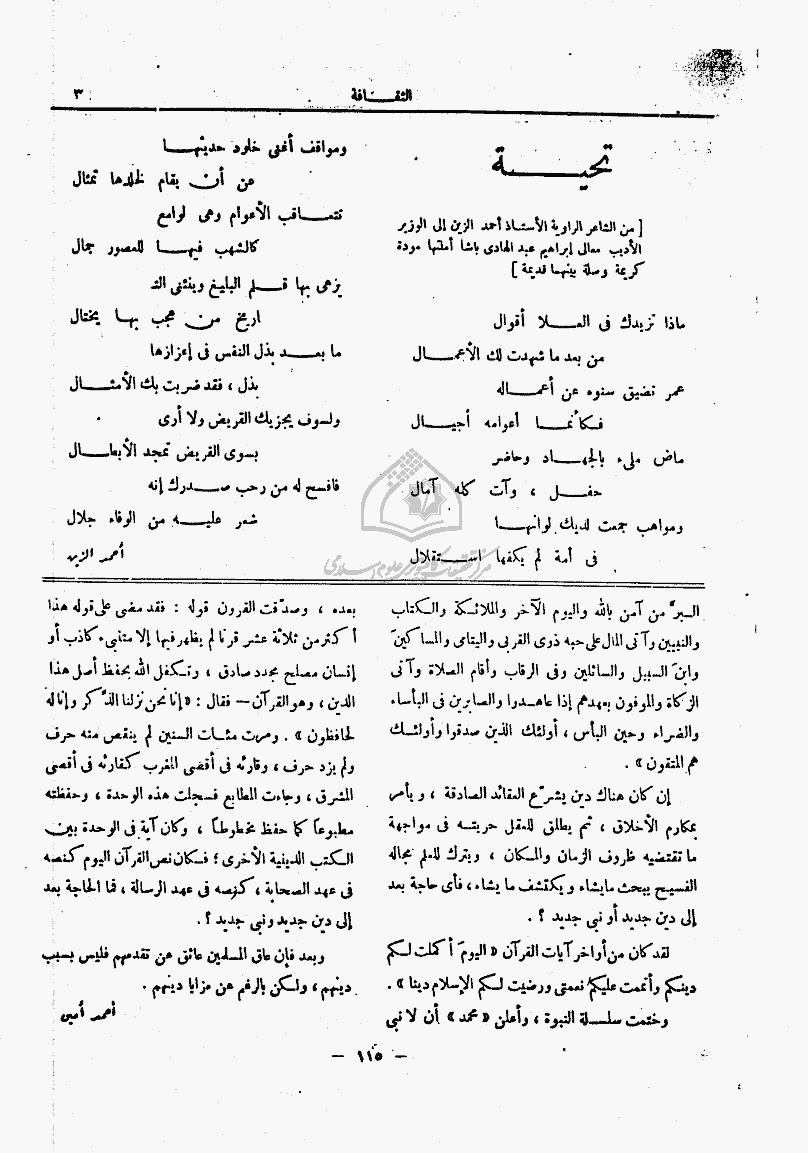 الثقـــافة
٣
تحيـــــة
[ من الشاعر الراوية الأستاذ أحمد الزين إلى الوزير
الأديب معالى إبراهيم عبد الهادى باشا أملتها مودة
كريمة وصلة بينهما قديمة ]
ماذا تزيدك فى العــــلا أقوال
من بعد ما شهدت لك الأعمــال
عمر تضيق سنوه عن أعمـــاله
فكأنمــا أعوامه أجيــال
ماض ملىء بالجهــاد وحاضر
حفــل ، وآت كله آمال
ومواهب جمعت لديك لوانهــا
فى أمة لم يكفها استقلال
ومواقف أغنى خلود حديثهــا
عن أن يقام لخلدها تمثال
تتعــاقب الأعوام وهى لوامع
كالشهب فيهــا للعصور جمال
يزهى بها قــلم البليغ وينثنى التـ
ـاريخ من عجب بهــا يختال
ما بعــد بذل النفس فى إعزازها
بذل ، فقد ضربت بك الأمثــال
ولسوف يجزيك القريض ولا أرى
بسوى القريض تمجد الأبطــال
فافسح له من رحب صــدرك إنه
شعر عليــه من الوفاء جلال
أحمد الزين
مركز تحقيقات كامپيوترى علوم اسلامى
البرَّ من آمن بالله واليوم الآخر والملائكة والكتاب
والنبيين وآتى المال على حبه ذوى القربى واليتامى والمساكينَ
وابنَ السبيل والسائلين وفى الرقاب وأقام الصلاة وآتى
الزكاة والموفون بعهدهم إذا عاهدوا والصابرين فى البأساء
والضراء وحين البأس ، أولئك الذين صدقوا وأولئك
هم المتقون » .
إن كان هناك دين يشرّع العقائد الصادقة ، ويأمر
بمكارم الأخلاق ، ثم يطلق للعقل حريته فى مواجهة
ما تقتضيه ظروف الزمان والمكان ، ويترك للعلم مجاله
الفسيح يبحث ما يشاء ويكتشف ما يشاء ، فأى حاجة بعد
إلى دين جديد أو نبى جديد ؟ .
لقد كان من أواخر آيات القرآن « اليومَ أكملت لكم
دينكم وأتممت عليكم نعمتى ورضيت لكم الإسلام دينا » .
وختمت سلسلة النبوة ، وأعلن « محمد » أن لا نبى
بعده ، وصدّقت القرون قوله : فقد مضى على قوله هذا
أكثر من ثلاثة عشر قرنا لم يظهر فيها إلا متنبىء كاذب أو
إنسان مصلح مجدد صادق ، وتكفل الله بحفظ أصل هذا
الدين ، وهو القرآن — فقال : « إنا نحن نزلنا الذكر وإنا له
لحافظون » . ومرت مئات السنين لم ينقص منه حرف
ولم يزد حرف ، وقارئه فى أقصى المغرب كقارئه فى أقصى
المشرق ، وجاءت المطابع فسجلت هذه الوحدة ، وحفظته
مطبوعاً كما حفظ مخطوطاً ، وكان آية فى الوحدة بين
الكتب الدينية الأخرى ؛ فكان نص القرآن اليوم كنصه
فى عهد الصحابة ، كنصه فى عهد الرسالة ، فما الحاجة بعد
إلى دين جديد ونبى جديد ؟ .
وبعد فإن عاق المسلمين عائق عن تقدمهم فليس بسبب
دينهم ، ولكن بالرغم عن مزايا دينهم .
أحمد أمين
— ١١٥ —